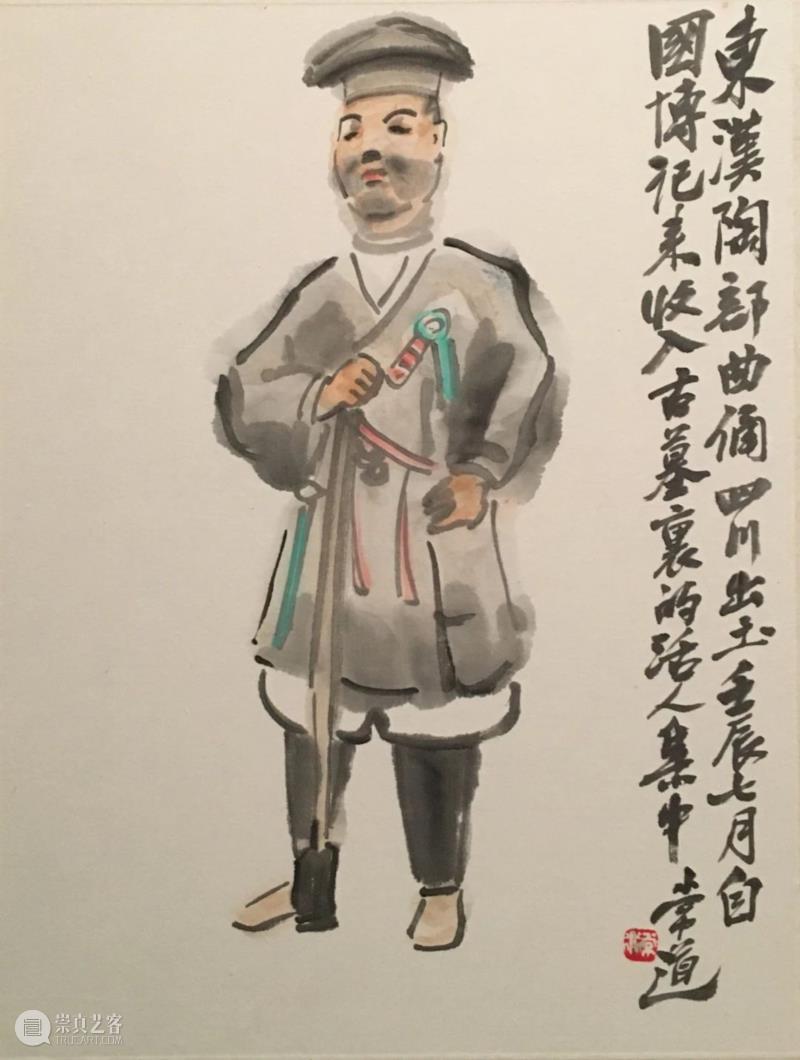 東漢陶部曲俑四川出土壬辰七月自
國博记来收入古墓裏的活人集中
常道
崇真艺客
TRUEART.COM